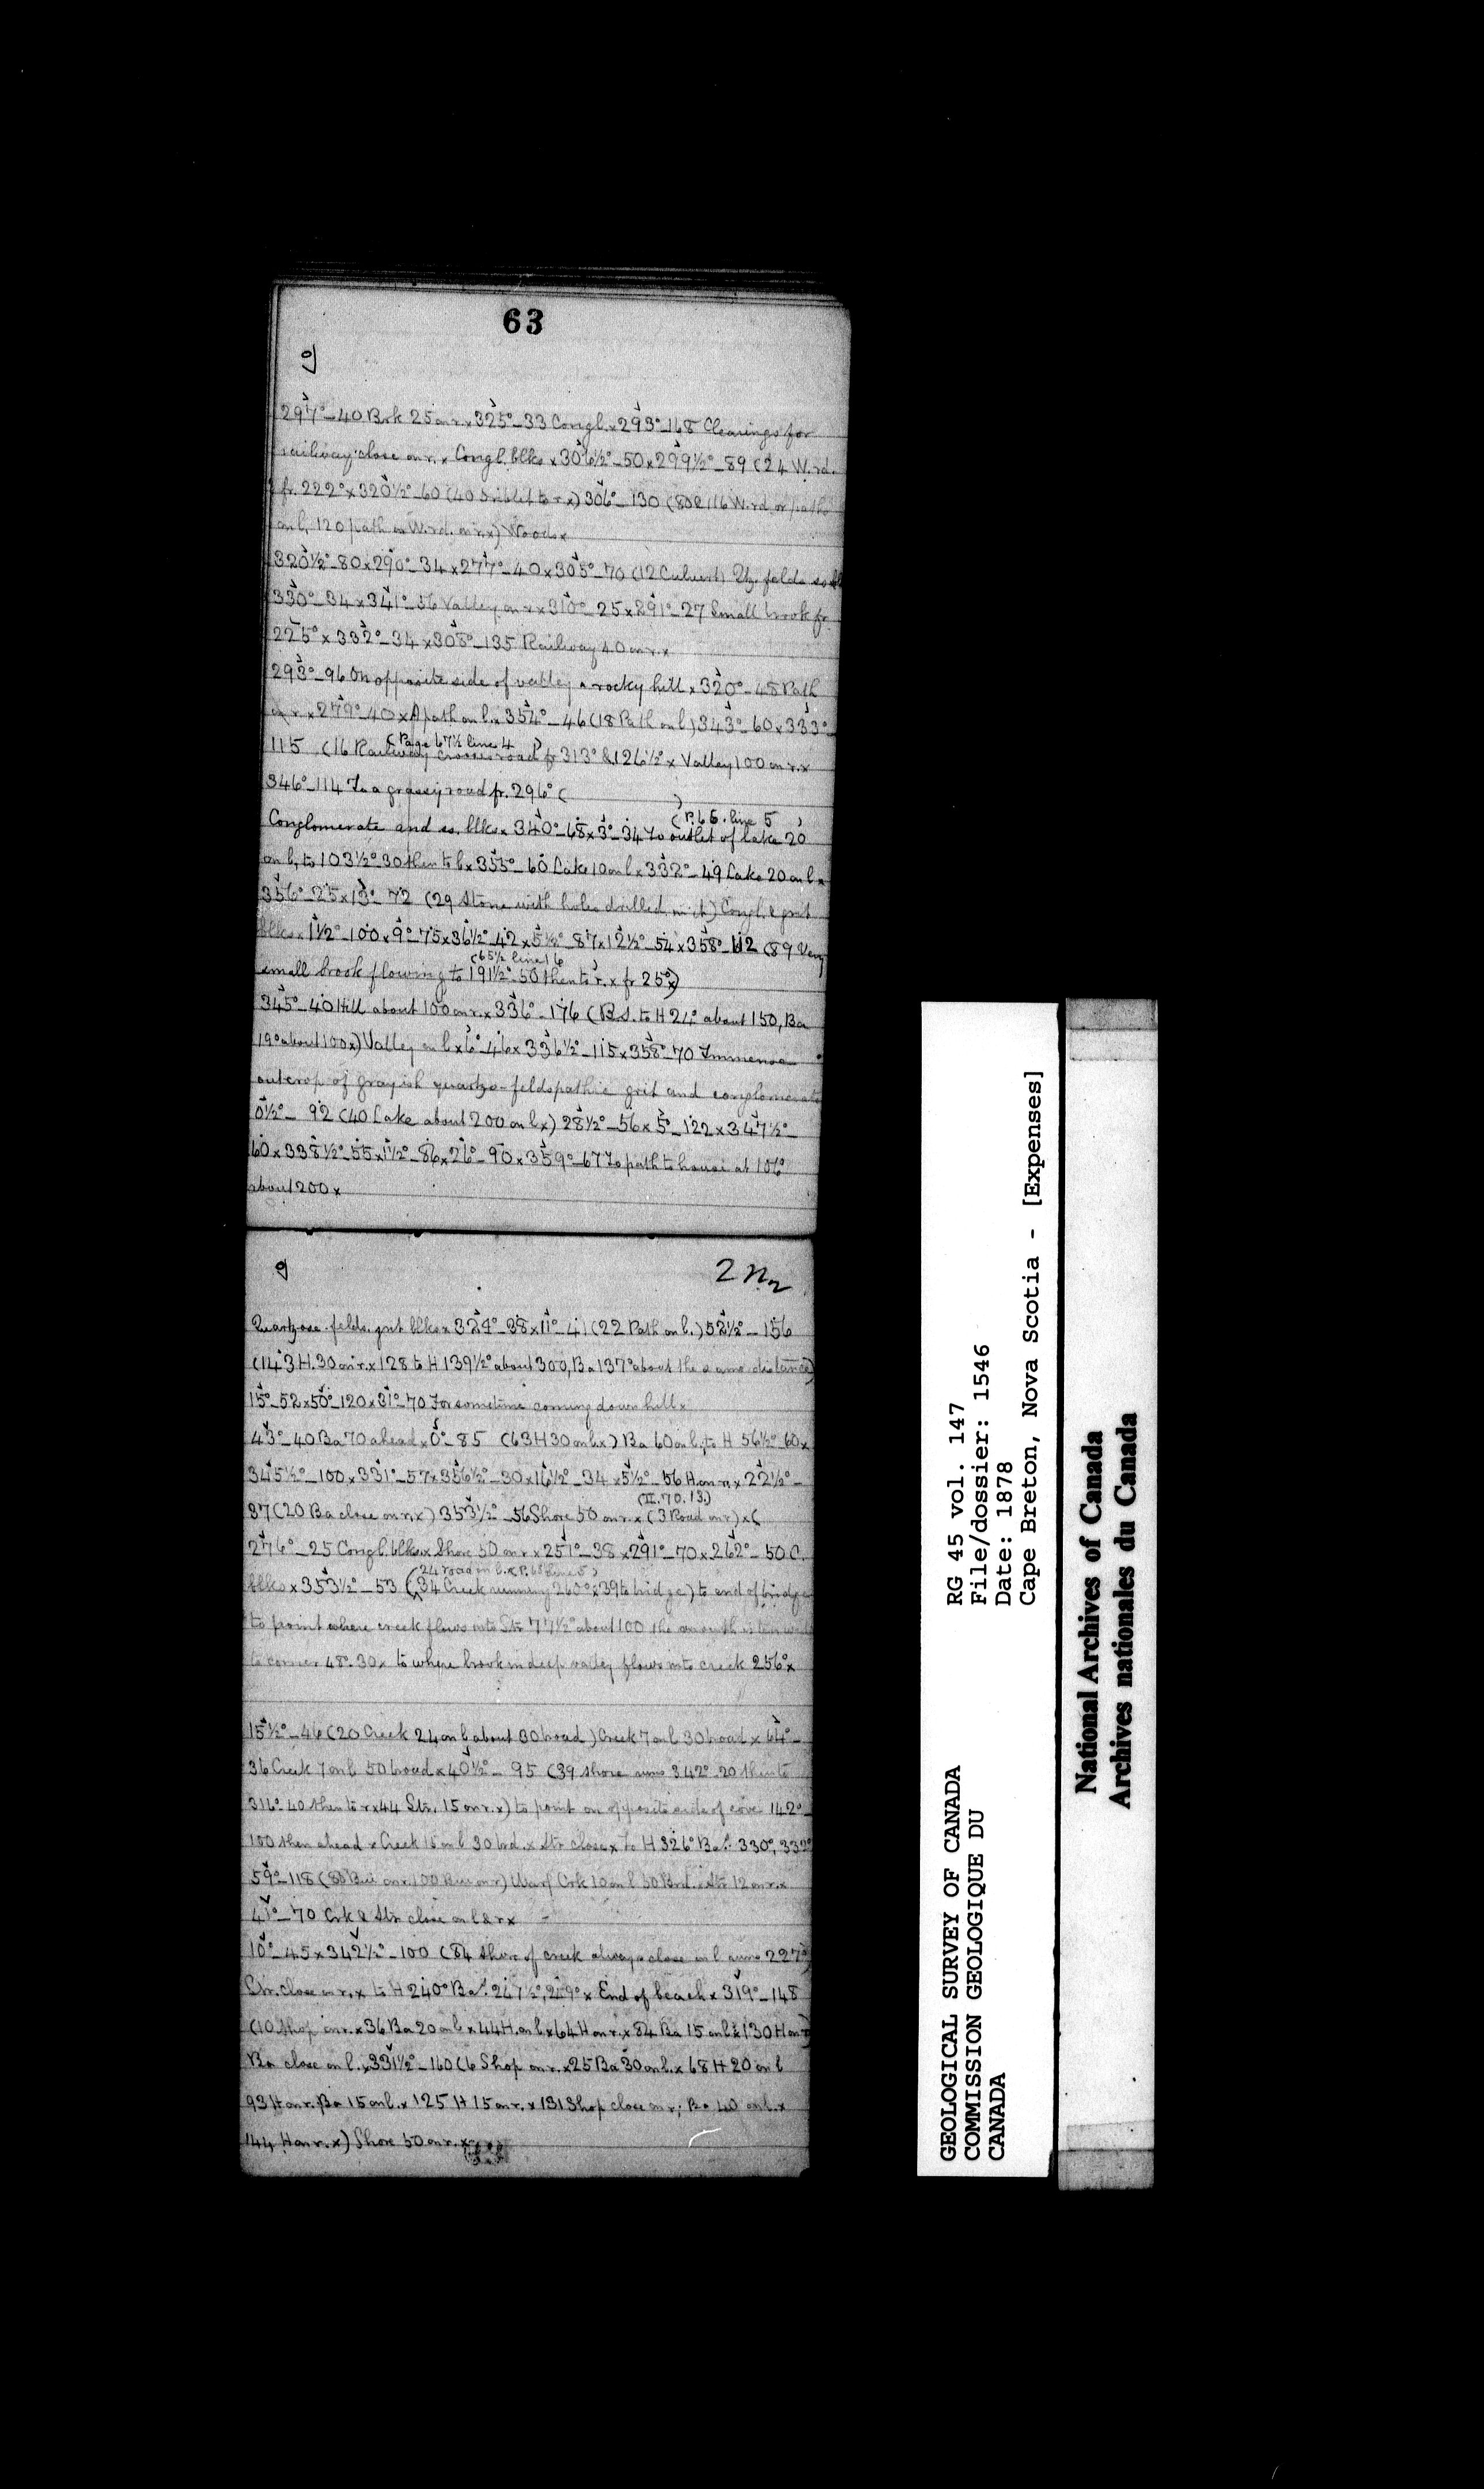 63
9
297°–40 Brk 25 on r.x 325°–33 Congl. x 293°–168 Clearings for
railway close on r. x Congl. blks x 306½°–50 x 299½°–89 (24 W. rd.
fr. 222° x 320½°–60 (40 to r x) 306°–130 (116 W. rd or path
on l, 120 path on W. rd. on r. x) Woods x
320½°–80 x 290°–34 x 277°–40 x 305°–70 (12 Culvert) Qtz. felds ss
330°–34 x 341°–56 Valley on r x 310°–25 x 291°–27 Small brook fr
225° x 332°–34 x 308°–135 Railway 40 on r. x
293°–96 On opposite side of valley a rocky hill x 320°–48 Path
on r. x 279°–40 x A path on l. x 354°–46 (18 Path on l) 343°–60 x 333°–
(Page 67½ line 4)
115 (16 Railway crosses road fr 313° & 126½° x Valley 100 on r. x
346°–114 To a grassy road fr. 296° ( )
(P. 65. line 5)
Conglomerate and ss. blks x 340°–68 x 3°–34 To outlet of lake 20
on l, to 103½° 30 then to l x 355°–60 Lake 10 on l x 332°–49 Lake 20 on l x
356°–25 x 13°–72 (29 Stone with holes drilled in it) Congl. & grit
blks x 1½°–100 x 9°–75 x 36½°–42 x 5½°–87 x 12½°–54 x 358°–112 (89 Very
(65½ line 16
small brook flowing to 191½°–50 then to r. x fr 25° x)
345°–40 Hill about 100 on r. x 336°–176 (B.S. to H 24° about 150, Ba
19° about 100 x) Valley on l x 6°–46 x 336½°–115 x 358°–70 Immense
outcrop of grayish quartzo-feldspathic grit and conglomerate
0½°–92 (40 Lake about 200 on l x) 28½°–56 x 5°–122 x 347½°–
60 x 338½°–55 x 1½°–86 x 26°–90 x 359°–67 To path to house at 106°
about 200 x
9
Quartzose felds. grit blks x 324°–38 x 11°–41 (22 Path on l.) 52½°–156
(143 H. 30 on r. x 128 to H 139½° about 300, Ba 137° about the same distance)
15°–52 x 50°–120 x 31°–70 For sometime coming down hill x
43°–40 Ba 70 ahead x 0°–85 (63 H 30 on l. x) Ba 60 on l, to H 56½° 60 x
345½°–100 x 331°–57 x 356½°–30 x 16½°–34 x 5½°–56 H. on r. x 22½°–
(II. 70. 13.)
87 (20 Ba close on r. x) 353½°–56 Shore 50 on r. x (3 Road on r) x (
276°–25 Congl. blks. x Shore 50 on r x 251°–38 x 291°–70 x 262°–50 C.
24 road on l. x P. 68 line 5)
blks x 353½°–53 (34 Creek running 260° x 39 to bridge) to end of bridge
to point where creek flows into Str 77½° about 100 the mouth is
to corner 48° 30 x to where brook in deep valley flows into creek 256° x
15½°–46 (20 Creek 24 on l about 30 broad) Creek 7 on l 30 broad x 64°–
36 Creek 7 on l 50 broad x 40½°–95 (39 shore runs 342° 20 then to
316° 40 then to r x 44 Str. 15 on r. x) to point on opposite side of cove 142°–
100 then ahead x Creek 15 on l 30 brd. x Str close x To H 326° Ba.s 330°, 332°
59°–118 Crk 10 on l 50 Brd. x Str 12 on r. x
41°–70 Crk & Str close on l & r x
10°–45 x 342½°–100 (84 shore of creek always close on l runs 227°)
Str. close on r. x to H 240° Ba.s 247½°, 249° x End of beach x 319°–148
(10 Shop on r. x 36 Ba 20 on l x 44 H. on l x 64 H on r. x 84 Ba 15 on l x 130 H on r)
Ba close on l. x 331½°–160 (6 Shop on r. x 25 Ba 30 on l. x 68 H 20 on l
93 H on r. Ba 15 on l. x 125 H 15 on r. x 131 Shop close on r; Ba 40 on l. x
144 H on r. x) Shore 50 on r. x
GEOLOGICAL SURVEY OF CANADA
COMMISSION GEOLOGIQUE DU
CANADA
RG 45 vol. 147
File/dossier: 1546
Date: 1878
Cape Breton, Nova Scotia - [Expenses]
National Archives of Canada
Archives nationales du Canada